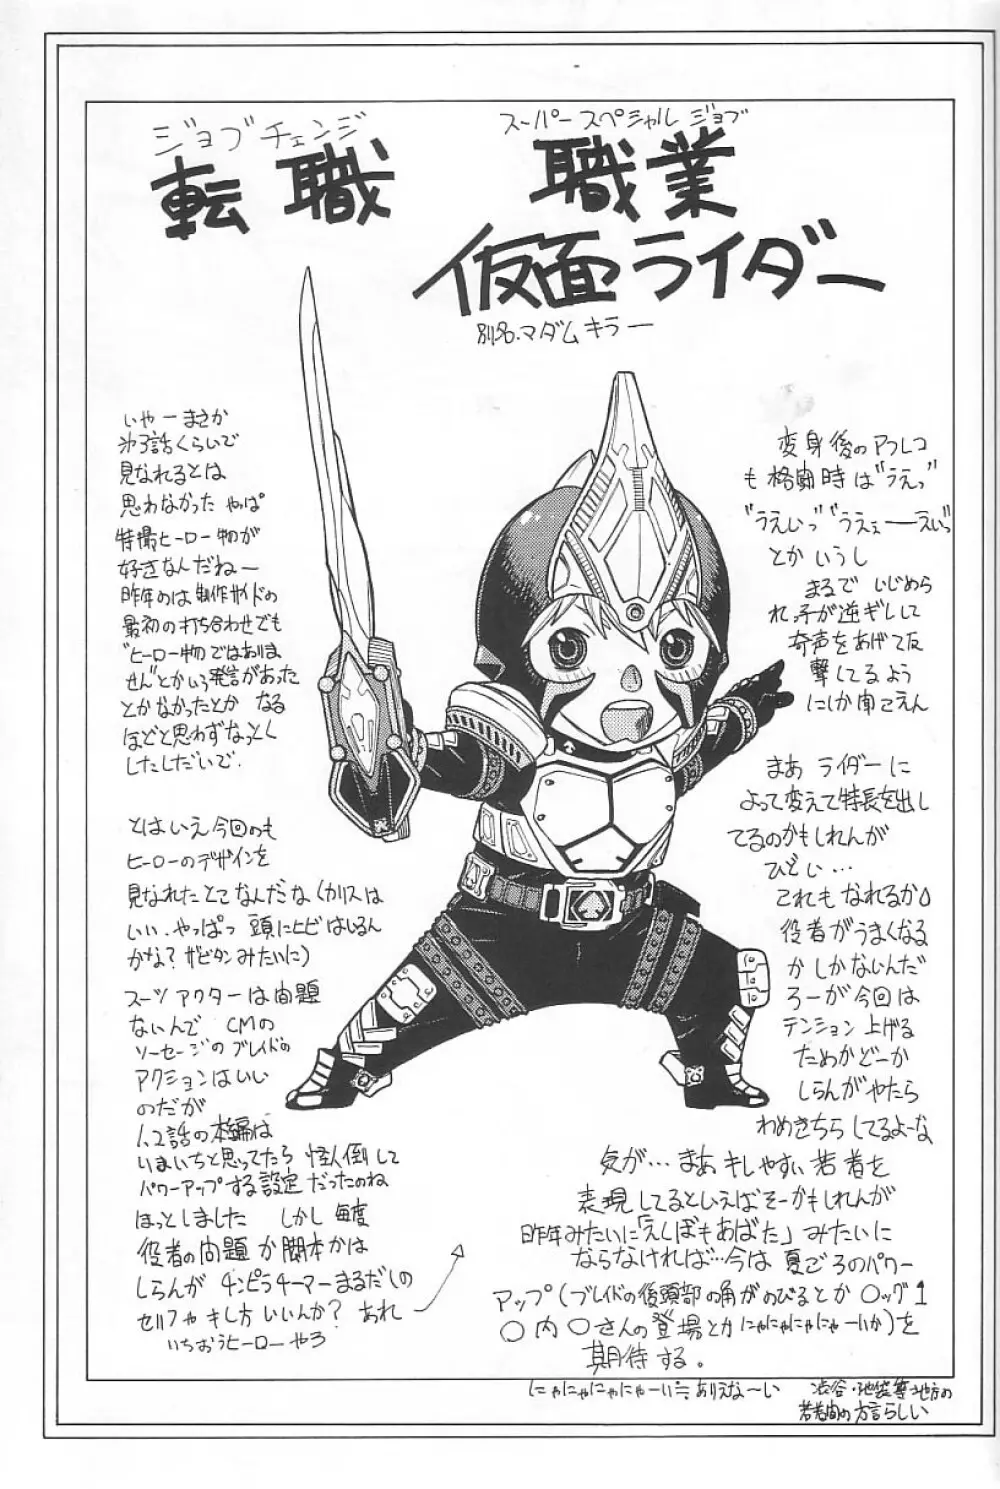 ジョブチェンジ
転職
スーパースペシャル ジョブ
職業
仮面ライダー
別名.マダムキラー
いやーまさか
第3話くらいで
見なれるとは
思わなかった やっぱ
特撮ヒーロー物が
好きなんだねー
昨年のは制作サイドの
最初の打ち合わせでも
"ヒーロー物ではありま
せん"とかいう発言があった
とかなかったとか なる
ほどと思わずなっとく
したしだいで.
とはいえ今回のも
ヒーローのデザインを
見なれたとこなんだな(カリスは
いい.やっぱっ 頭にヒビはしるん
かな?ザビタンみたいに)
スーツアクターは問題
ないんで CMの
ソーセージのブレイドの
アクションはいい
のだが
1,2話の本編は
いまいちと思ってたら 怪人倒して
パワーアップする設定だったのね
ほっとしました しかし毎度
役者の問題か脚本かは
しらんが チンピラチーマーまるだしの
セリフやキレ方いいんか? あれ
いちおうヒーローやろ
変身後のアフレコ
も格闘時は"うえっ"
"うえいっ""うえぇーーえいっ"
とかいうし
まるでいじめら
れっ子が逆ギレして
奇声をあげて反
撃してるよう
にしか聞こえん
まあ ライダーに
よって変えて特長を出し
てるのかもしれんが
ひどい…
これもなれるか
役者がうまくなる
かしかないんだ
ろーが今回は
テンション上げる
ためかどーか
しらんがやたら
わめきちらしてるよーな
気が…まあキレやすい若者を
表現してるといえばそーかもしれんが
昨年みたいに「えくぼもあばた」みたいに
ならなければ…今は夏ごろのパワー
アップ(ブレイドの後頭部の角がのびるとか〇ッグ1
〇内〇さんの登場とかにゃにゃにゃにゃーいか)を
期待する。
にゃにゃにゃにゃーい≒ありえなーい
渋谷・池袋等地方の
若者間の方言らしい